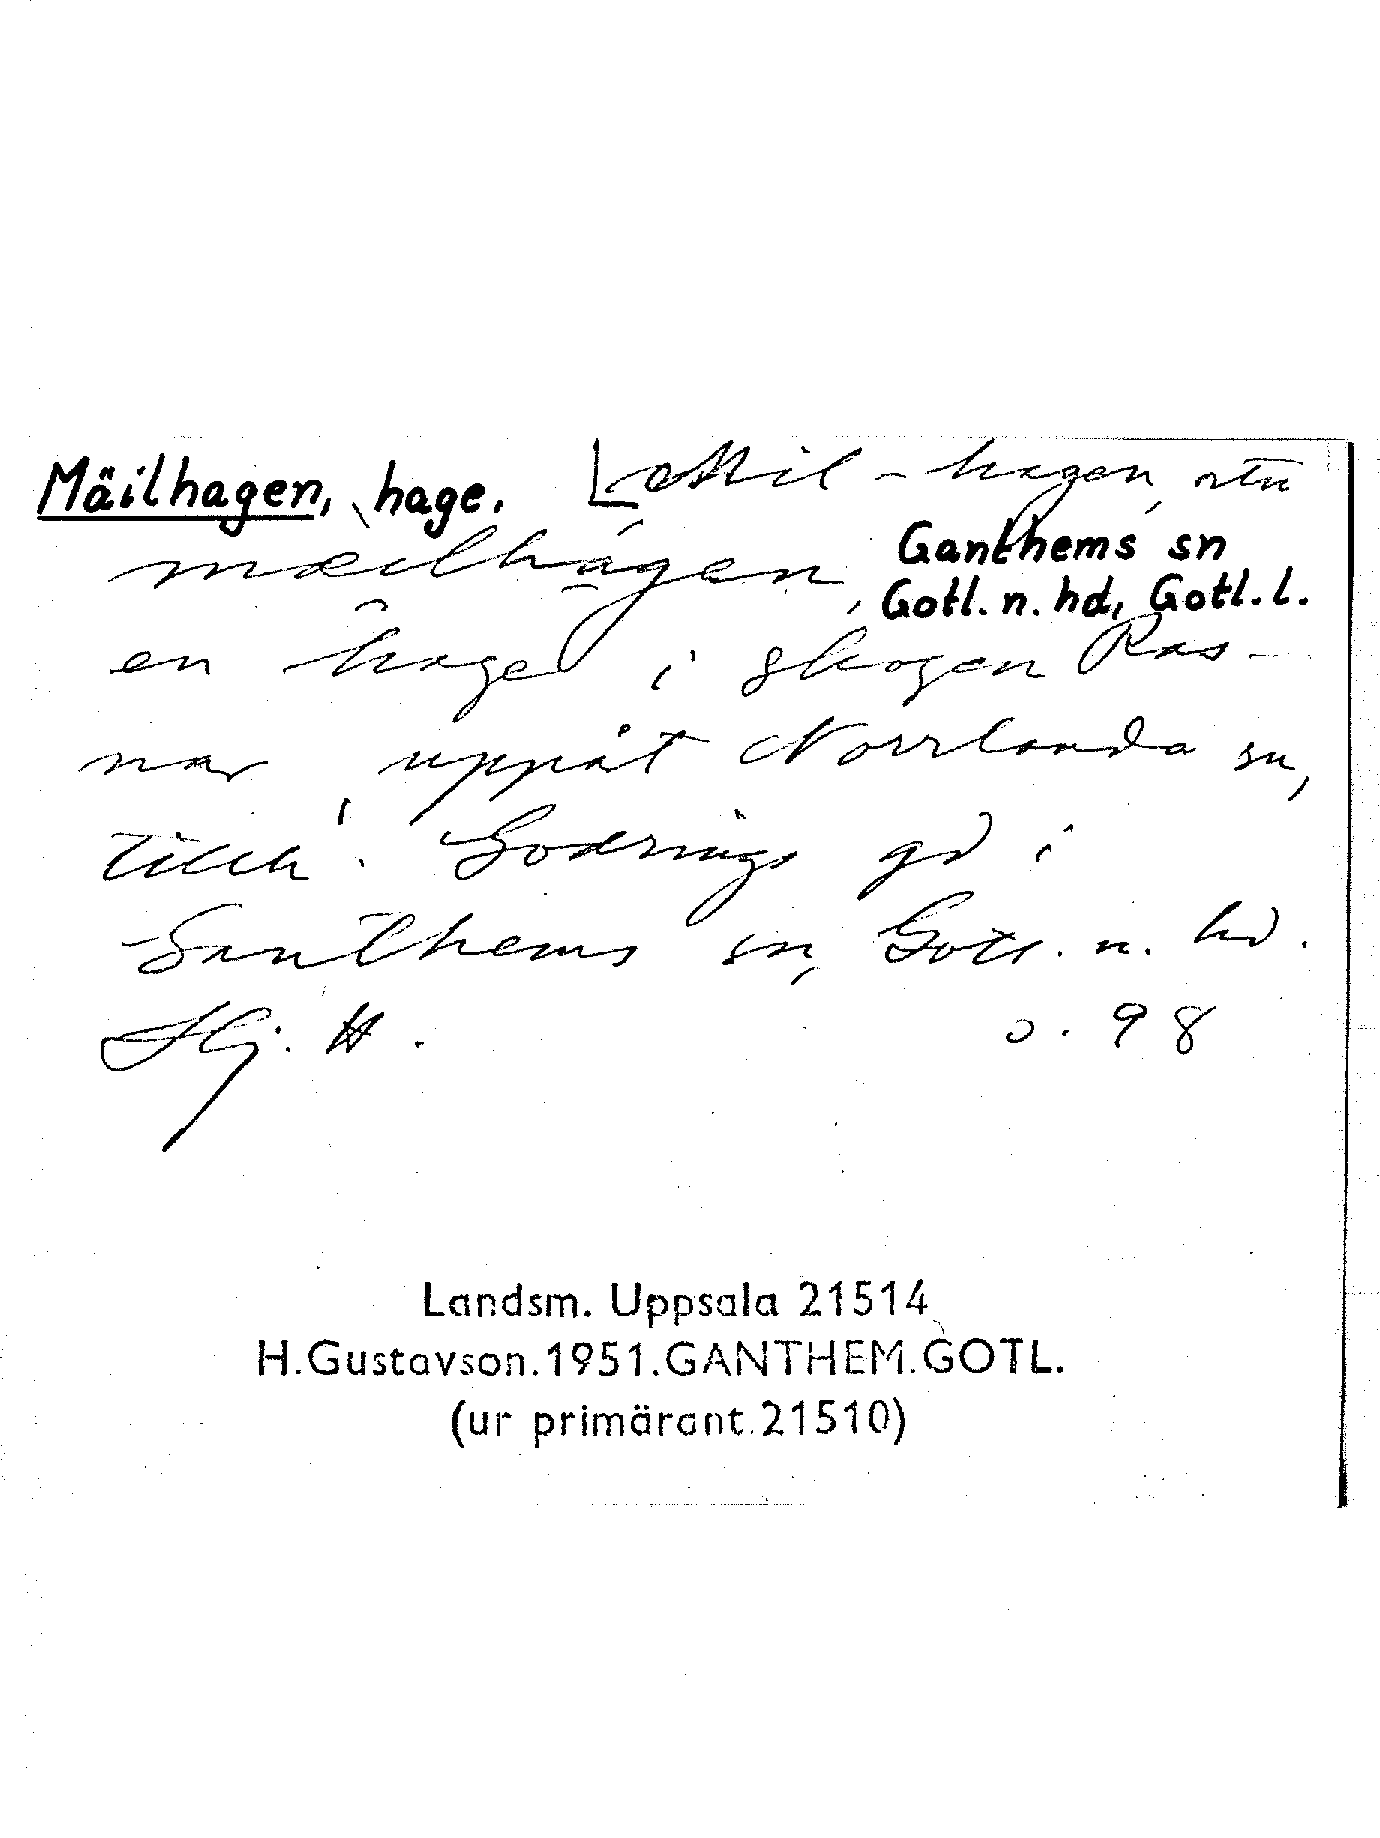 Mäilhagen, hage. Mil-hagen, ortn
Ganthems sn
mæilhagen, Gotl. n. hd, Gotl. l.
en hage i skogen Ras-
nar, uppåt Norrlanda sn,
tillh. Godrings gd i
Ganthems sn, Gotl. n. hd.
Hj. H. o. 98
Landsm. Uppsala 21514
H.Gustavson.1951.GANTHEM.GOTL.
(ur primärant.21510)